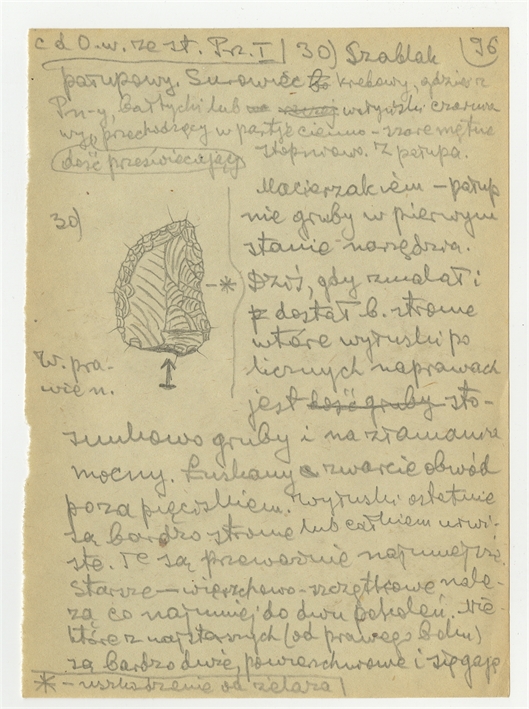 c d O. w. ze st. Prz. I 30) Szablak 96
patupowy. Surowiec krekowy, gdzieś z
Pn-y, bałtycki lub wołyński czarna
wy, przechodzący w partje ciemno-szare mętne
dość przeświecający stopniowo. Z pałupa.
30)
Macierzakiem - patup
nie gruby w pierwszym
stanie narzędzia.
Dziś, gdy zmalał i
dostał b. strome
wtóre wyłuski po
W. pra-
wie n.
licznych naprawach
jest dość gruby sto-
sunkowo gruby i na złamania
mocny. Łuskany zwarcie obwód
poza pięciskiem. Wyłuski ostatnie
są bardzo strome lub całkiem urwi-
ste. Te są przeważnie najmniejsze.
Starsze - wierzchowo-szczątkowe nale-
żą co najmniej do dwu pokoleń. Nie-
które z najstarszych (od prawego boku)
są bardzo duże, powierzchniowe i sięgają
* - uszkodzenie od żelaza